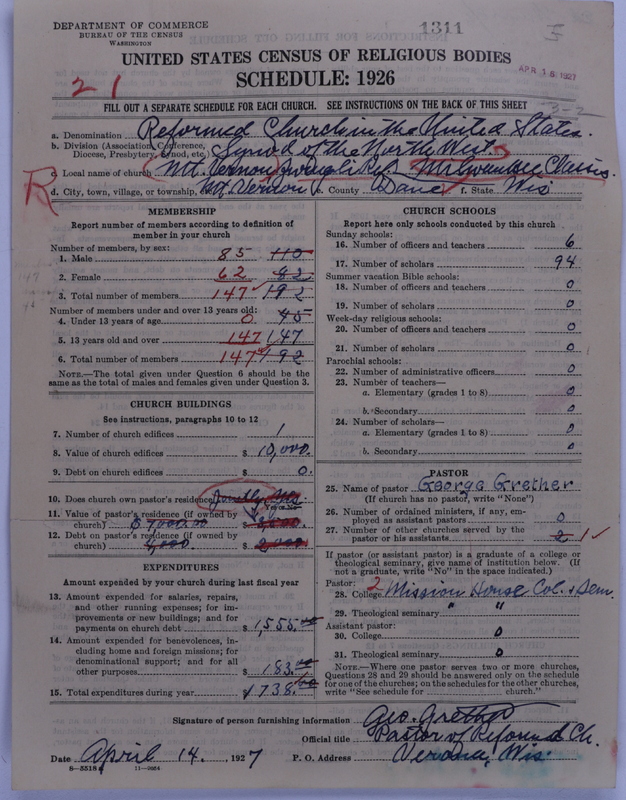 DEPARTMENT OF COMMERCE
BUREAU OF THE CENSUS
WASHINGTON
1311
UNITED STATES CENSUS OF RELIGIOUS BODIES
APR 18 1927
SCHEDULE: 1926
2 1
FILL OUT A SEPARATE SCHEDULE FOR EACH CHURCH. SEE INSTRUCTIONS ON THE BACK OF THIS SHEET
3-2
a. Denomination Reformed Church in the United States.
b. Division (Association, Conference, Diocese, Presbytery, Synod, etc.) Synod of the North West
c. Local name of church Mt. Vernon Ref. Milwaukee Classis
R
d. City, town, village, or township, etc. Mt. Vernon e. County Dane f. State Wis
MEMBERSHIP
Report number of members according to definition of
member in your church
Number of members, by sex:
1. Male 85 110
2. Female 62 82
3. Total number of members 147 192
Number of members under and over 13 years old:
4. Under 13 years of age 0 45
5. 13 years old and over 147 147
6. Total number of members 147 192
NOTE.—The total given under Question 6 should be the
same as the total of males and females given under Question 3.
CHURCH BUILDINGS
See instructions, paragraphs 10 to 12
7. Number of church edifices 1
8. Value of church edifices $ 10,000.
9. Debt on church edifices $ 0.
10. Does church own pastor's residence Jointly Yes
Yes or No
11. Value of pastor's residence (if owned by
church) $7000.00 $
12. Debt on pastor's residence (if owned by
church) 4,000. $
EXPENDITURES
Amount expended by your church during last fiscal year
13. Amount expended for salaries, repairs,
and other running expenses; for im-
provements or new buildings; and for
payments on church debt $ 1,555.00
14. Amount expended for benevolences, in-
cluding home and foreign missions; for
denominational support; and for all
other purposes $ 183.00
15. Total expenditures during year $ 1738.00
CHURCH SCHOOLS
Report here only schools conducted by this church
Sunday schools:
16. Number of officers and teachers 6
17. Number of scholars 94
Summer vacation Bible schools:
18. Number of officers and teachers 0
19. Number of scholars 0
Week-day religious schools:
20. Number of officers and teachers 0
21. Number of scholars 0
Parochial schools:
22. Number of administrative officers 0
23. Number of teachers—
a. Elementary (grades 1 to 8) 0
b. Secondary 0
24. Number of scholars—
a. Elementary (grades 1 to 8) 0
b. Secondary 0
PASTOR
25. Name of pastor George Grether
(If church has no pastor, write "None")
26. Number of ordained ministers, if any, em-
ployed as assistant pastors 0
27. Number of other churches served by the
pastor or his assistants 2 1✓
If pastor (or assistant pastor) is a graduate of a college or
theological seminary, give name of institution below. (If
not a graduate, write "No" in the space indicated.)
Pastor:
28. College 2 Mission House Col. + Sem.
29. Theological seminary " "
Assistant pastor:
30. College 0
31. Theological seminary 0
NOTE.—Where one pastor serves two or more churches,
Questions 28 and 29 should be answered only on the schedule
for one of the churches; on the schedules for the other churches,
write "See schedule for church."
Signature of person furnishing information Geo. Grether
Official title Pastor of Reformed Ch.
Date April 14, 1927 P. O. Address Verona, Wis.
8—5518 a 11—9664